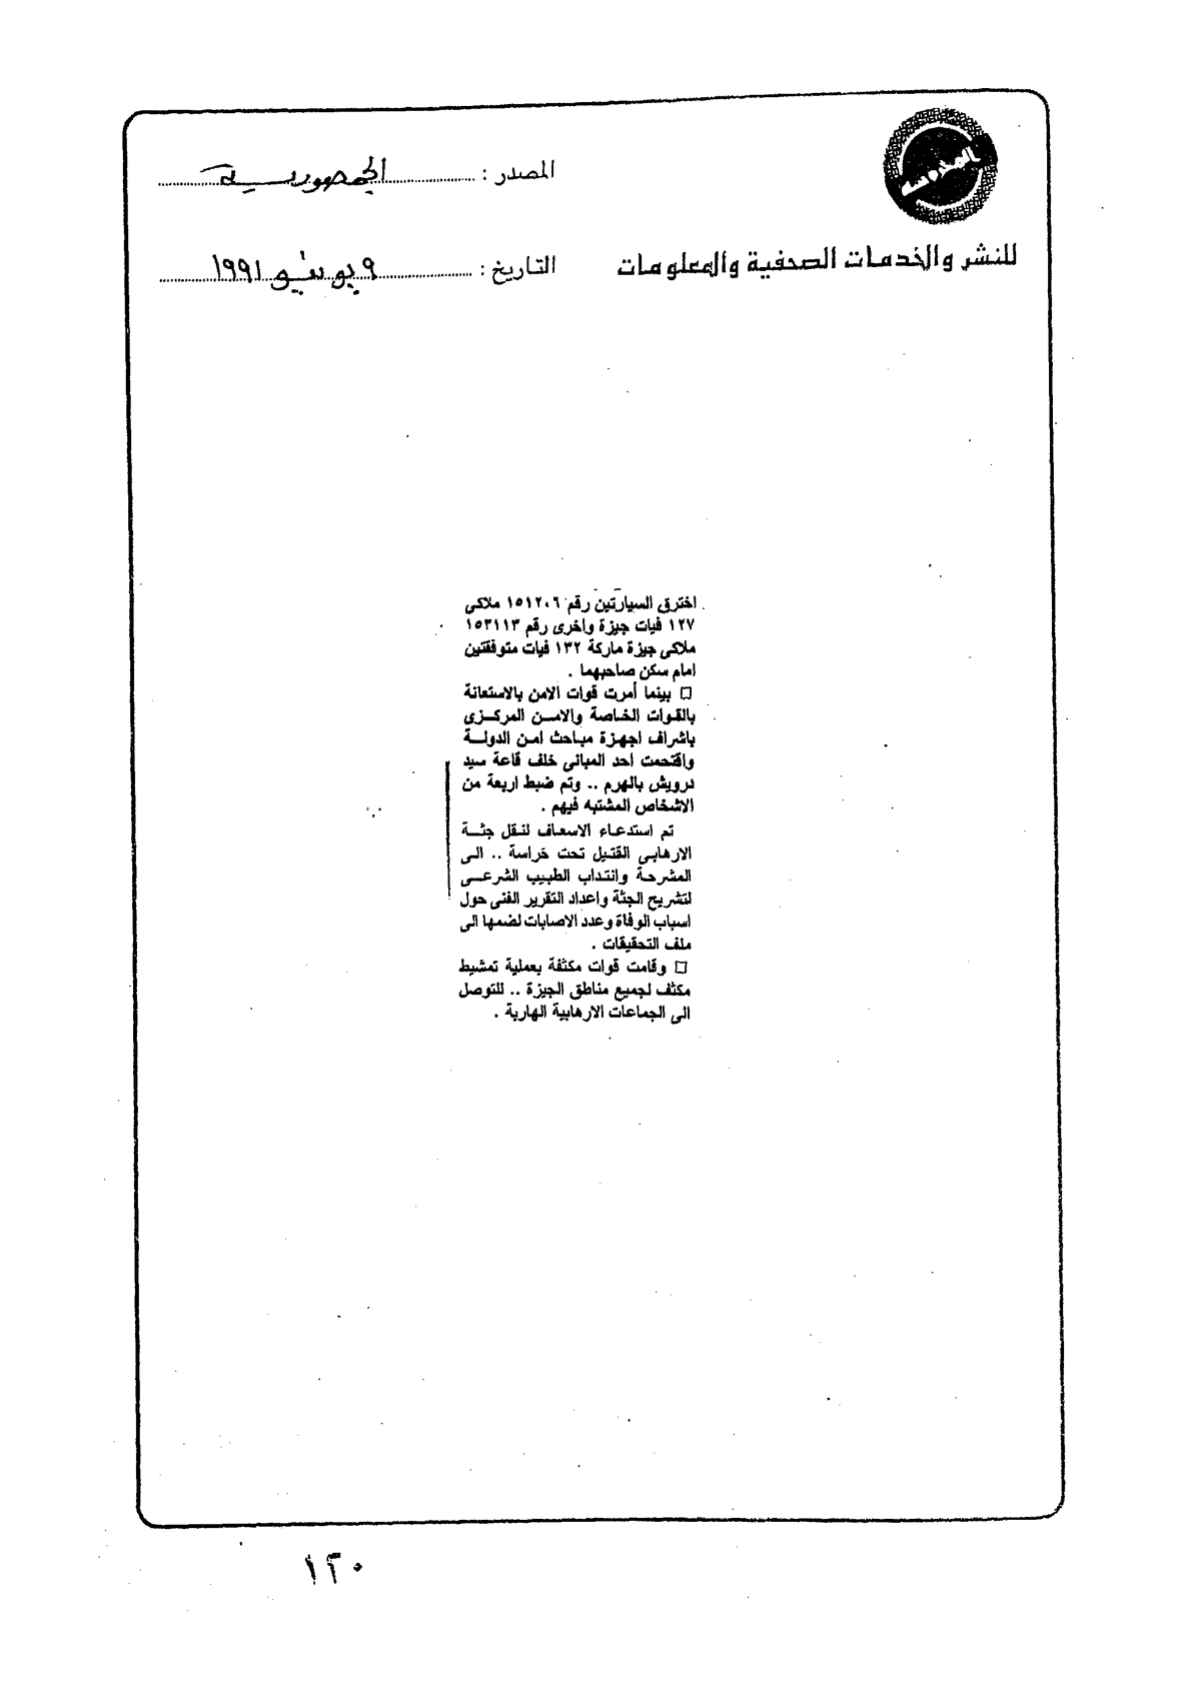 المصدر : الجمهورية
للنشر والخدمات الصحفية والمعلومات
التاريخ : ٩ يونيو ١٩٩١
اخترق السيارتين رقم ١٥١٢٠٦ ملاكى
١٢٧ فيات جيزة واخرى رقم ١٥٣١١٣
ملاكى جيزة ماركة ١٣٢ فيات متوقفتين
امام سكن صاحبهما .
□ بينما أمرت قوات الامن بالاستعانة
بالقوات الخاصة والامن المركزى
باشراف اجهزة مباحث امن الدولة
واقتحمت احد المبانى خلف قاعة سيد
درويش بالهرم .. وتم ضبط اربعة من
الاشخاص المشتبه فيهم .
تم استدعاء الاسعاف لنقل جثة
الارهابى القتيل تحت حراسة .. الى
المشرحة وانتداب الطبيب الشرعى
لتشريح الجثة واعداد التقرير الفنى حول
اسباب الوفاة وعدد الاصابات لضمها الى
ملف التحقيقات .
□ وقامت قوات مكثفة بعملية تمشيط
مكثف لجميع مناطق الجيزة .. للتوصل
الى الجماعات الارهابية الهاربة .
١٢٠